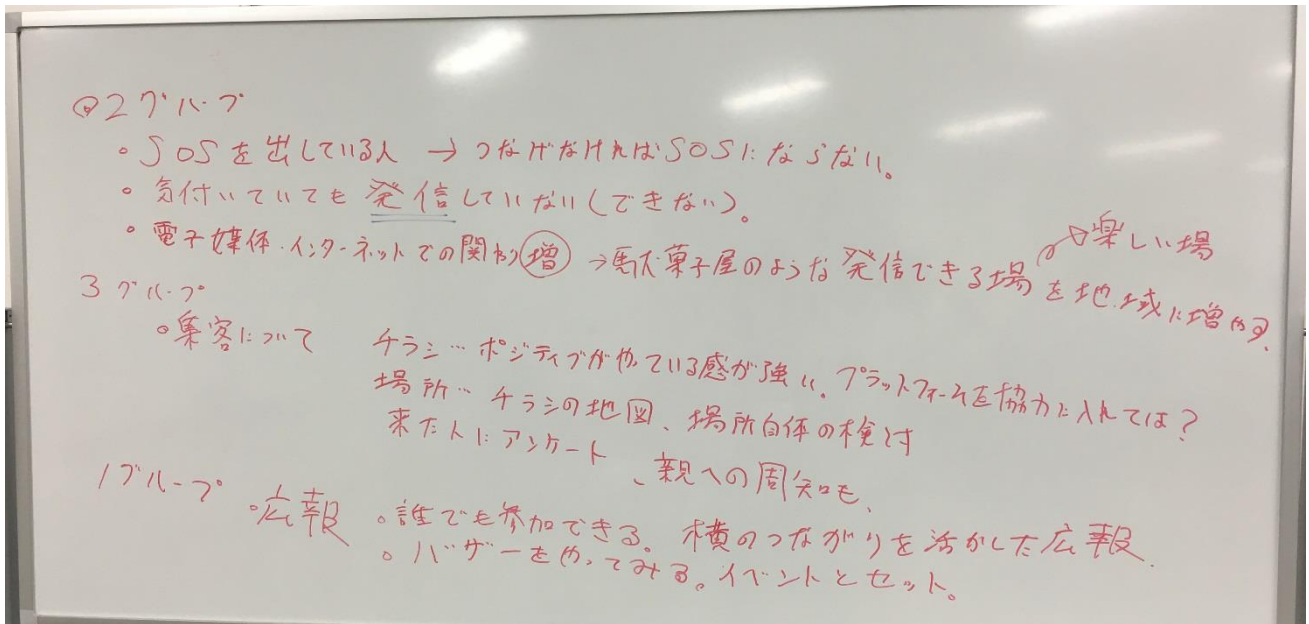 ◎2グループ
・SOSを出している人 → つなげなければSOSにならない。
・気付いていても発信していない(できない)。
・電子媒体・インターネットでの関わり増 →駄菓子屋のような発信できる場を地域に増やす。
楽しい場
3グループ
・集客について チラシ…ポジティブがやっている感が強い。プラットフォームを協力に入れては?
場所…チラシの地図、場所自体の検討
来た人にアンケート、親への周知も、
1グループ
・広報 ・誰でも参加できる。横のつながりを活かした広報.
・バザーをやってみる。イベントとセット。